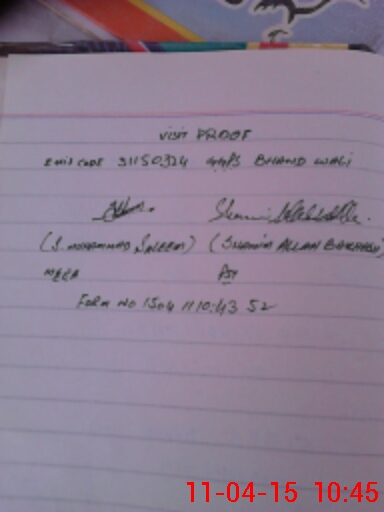 visit PROOF
Emis code 31150324 GGPS BHAND WALI
Shamim
(S. MOHAMMAD SALEEM) (SHAMIM ALLAH BAKHASH)
MEEA PST
FORM NO 1504 11 10:43 52
11-04-15 10:45